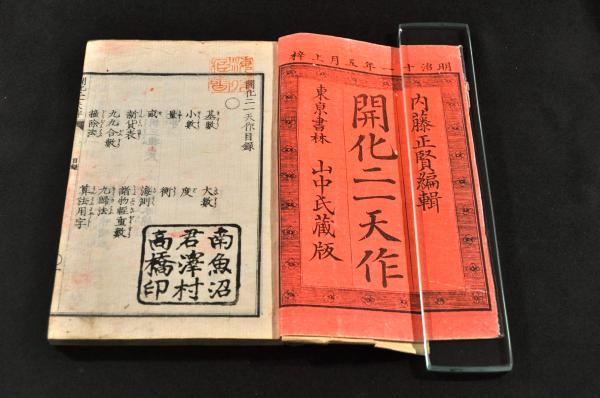 明治十一年五月上梓
内藤正賢編輯
開化二一天作
東京書林 山中氏藏版
開化二一天作目録
基數 大數
小數 度
量 衡
畝 海測
新貨表 諸物輕重數
九九合數 九歸法
撞除法 算法用字
南魚沼
君澤村
高橋印
目録